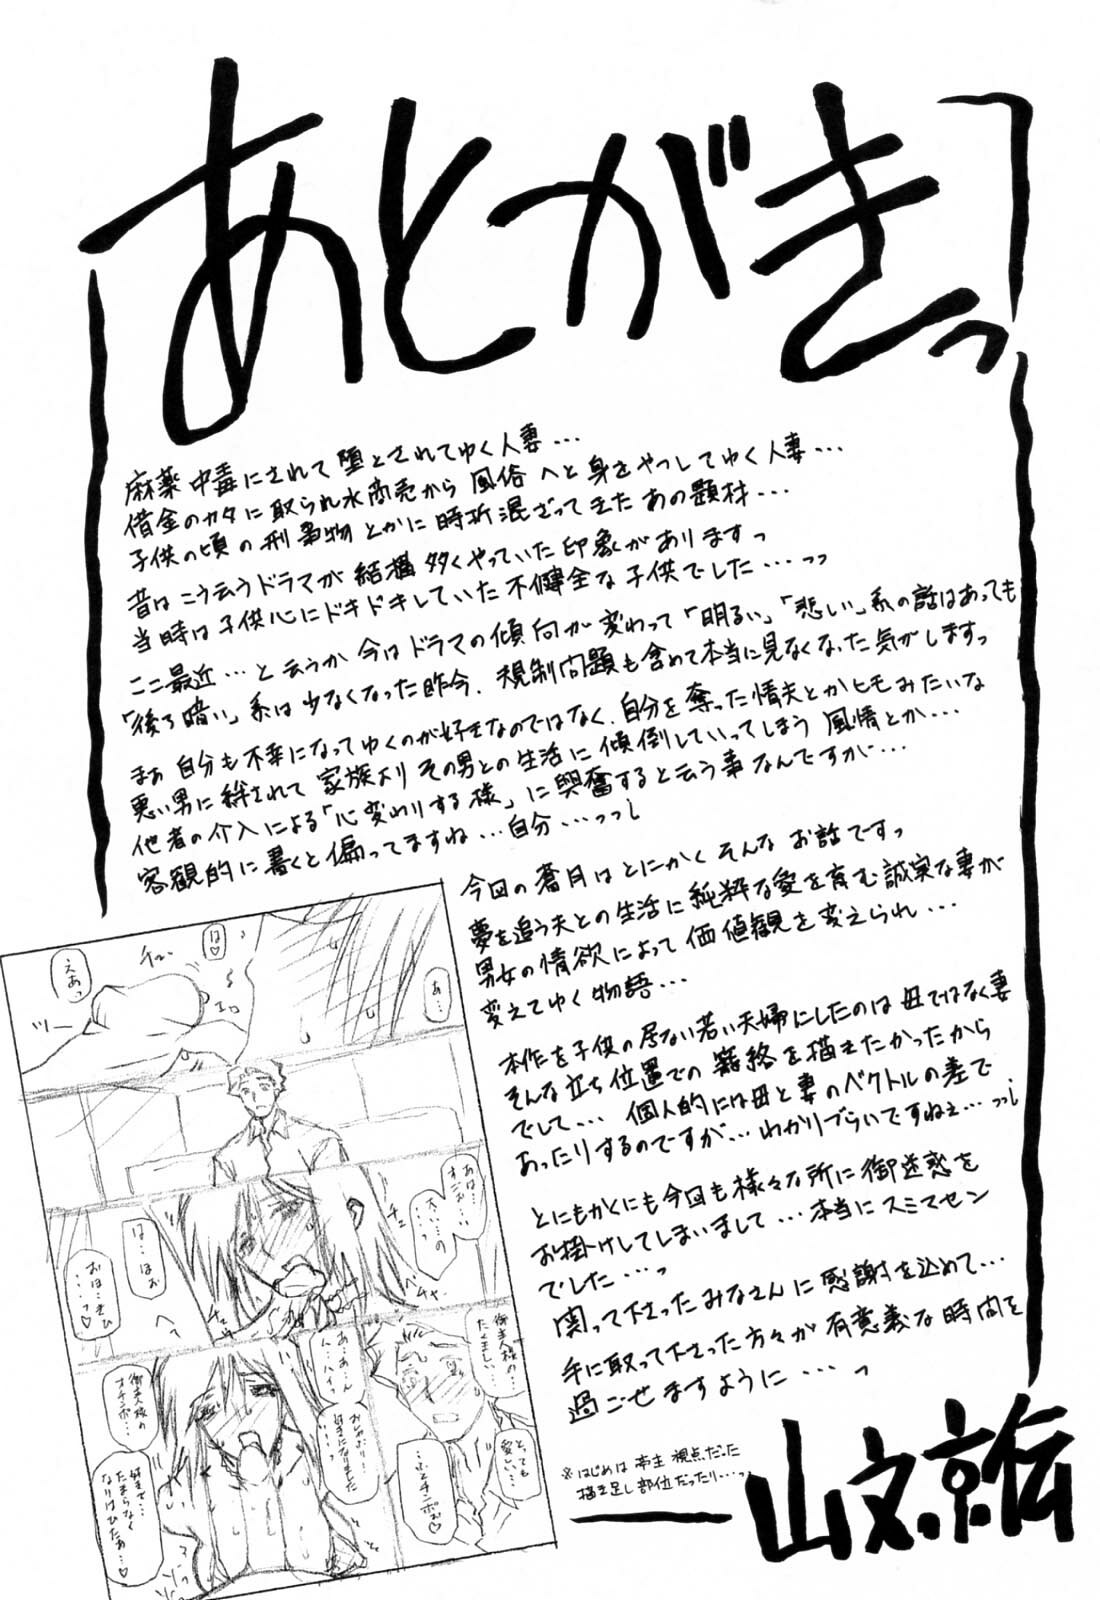 あとがきっ
麻薬中毒にされて堕とされてゆく人妻・・・
借金のカタに取られ水商売から風俗へと身をやつしてゆく人妻・・・
子供の頃の刑事物とかに時折混ざってきたあの題材・・・
昔はこう云うドラマが結構多くやっていた印象がありますっ
当時は子供心にドキドキしていた不健全な子供でした・・・っっ
ここ最近・・・と云うか今はドラマの傾向が変わって「明るい」「悲しい」系の話はあっても
「後ろ暗い」系は少なくなった昨今、規制問題も含めて本当に見なくなった気がしますっ
まぁ自分も不幸になってゆくのが好きなのではなく、自分を奪った情夫とかヒモみたいな
悪い男に絆されて家族よりその男との生活に傾倒していってしまう風情とか・・・
他者の介入による「心変わりする様」に興奮すると云う事なんですが・・・
客観的に書くと偏ってますね・・・自分・・・っっ
今回の蒼月はとにかくそんなお話ですっ
夢を追う夫との生活に純粋な愛を育む誠実な妻が
男女の情欲によって価値観を変えられ・・・
変えてゆく物語・・・
本作を子供の居ない若い夫婦にしたのは母ではなく妻
そんな立ち位置での籠絡を描きたかったから
でして・・・個人的には母と妻のベクトルの差で
あったりするのですが・・・わかりづらいですねぇ・・・っっ
とにもかくにも今回も様々な所に御迷惑を
お掛けしてしまいまして・・・本当にスミマセン
でした・・・っ
関って下さったみなさんに感謝を込めて・・・
手に取って下さった方々が有意義な時間を
過ごせますように・・・っ
※はじめは亭主視点だった
描き足し部位だったり・・・っ
山文京伝
は♡
えあっ
あ…
ツー
は…はお
おは…きひ
…っ♡
あは…
すごお…
大い…の
御主人様の…
たくましい…
あ…あ…ん
ん…ハイっ
おしゃぶり…
好きになりました
とっても
愛しい…
…ふとチンポぉ♡
御主人様の
オチンポ…
好きで…
たまらなく
なりはひたぁ…♡